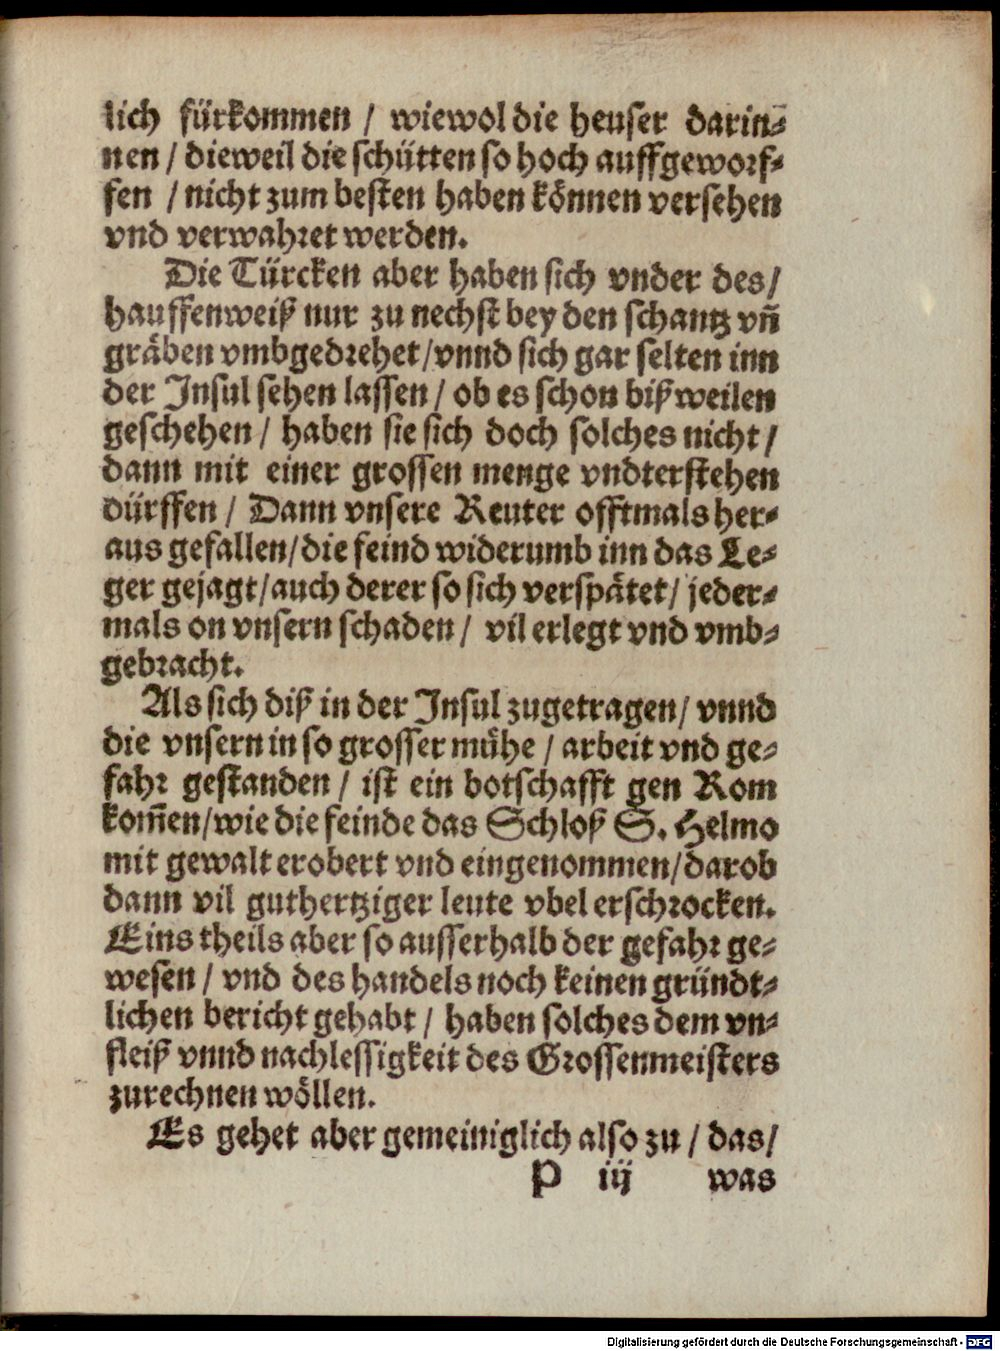 lich fürkommen / wiewol die heuser darin⸗
nen / dieweil die schütten so hoch auffgeworf⸗
fen / nicht zum besten haben können versehen
vnd verwahret werden.
Die Türcken aber haben sich vnder des /
hauffenweiß nur zu nechst bey den schantz vñ
gräben vmbgedrehet / vnnd sich gar selten inn
der Insul sehen lassen / ob es schon bißweilen
geschehen / haben sie sich doch solches nicht /
dann mit einer grossen menge vndterstehen
dürffen / Dann vnsere Reuter offtmals her⸗
aus gefallen / die feind widerumb inn das Le⸗
ger gejagt / auch derer so sich verspätet / jeder⸗
mals on vnsern schaden / vil erlegt vnd vmb⸗
gebracht.
Als sich diß in der Insul zugetragen / vnnd
die vnsern in so grosser mühe / arbeit vnd ge⸗
fahr gestanden / ist ein botschafft gen Rom
kom̃en / wie die feinde das Schloß S. Helmo
mit gewalt erobert vnd eingenommen / darob
dann vil guthertziger leute vbel erschrocken.
Eins theils aber so ausserhalb der gefahr ge⸗
wesen / vnd des handels noch keinen gründt⸗
lichen bericht gehabt / haben solches dem vn⸗
fleiß vnnd nachlessigkeit des Grossenmeisters
zurechnen wöllen.
Es gehet aber gemeiniglich also zu / das /
P iij was
Digitalisierung gefördert durch die Deutsche Forschungsgemeinschaft - DFG